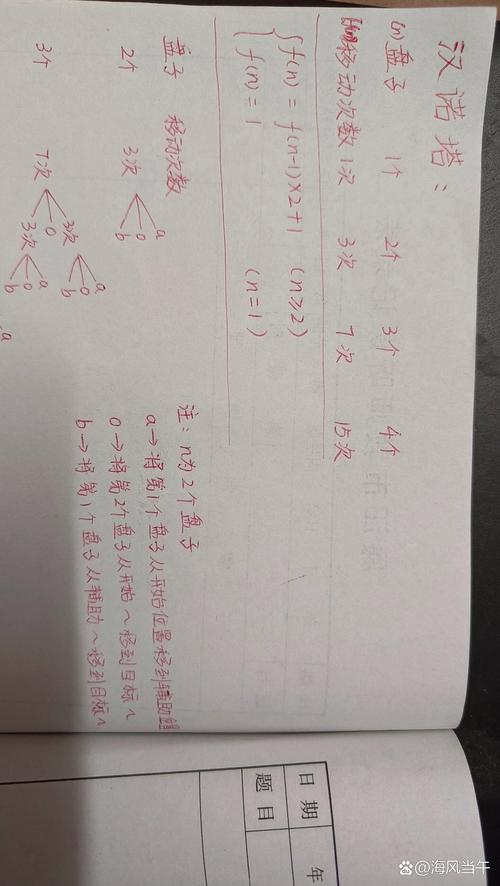 汉诺塔：
(n)盘子 1个 2个 3个 4个
移动次数 1次 3次 7次 15次
f(n) = f(n-1)×2+1 (n≥2)
f(n) = 1 (n=1)
盘子 移动次数
2个 3次 a
o
b
3个 7次 3次 a
o
b
o
3次 a
o
b
a
注：n为2个盘子
a→将第1个盘子从开始位置移到辅助
o→将第2个盘子从开始～移到目标～
b→将第1个盘子从辅助～移到目标～
日期 年
题目
@海风当午